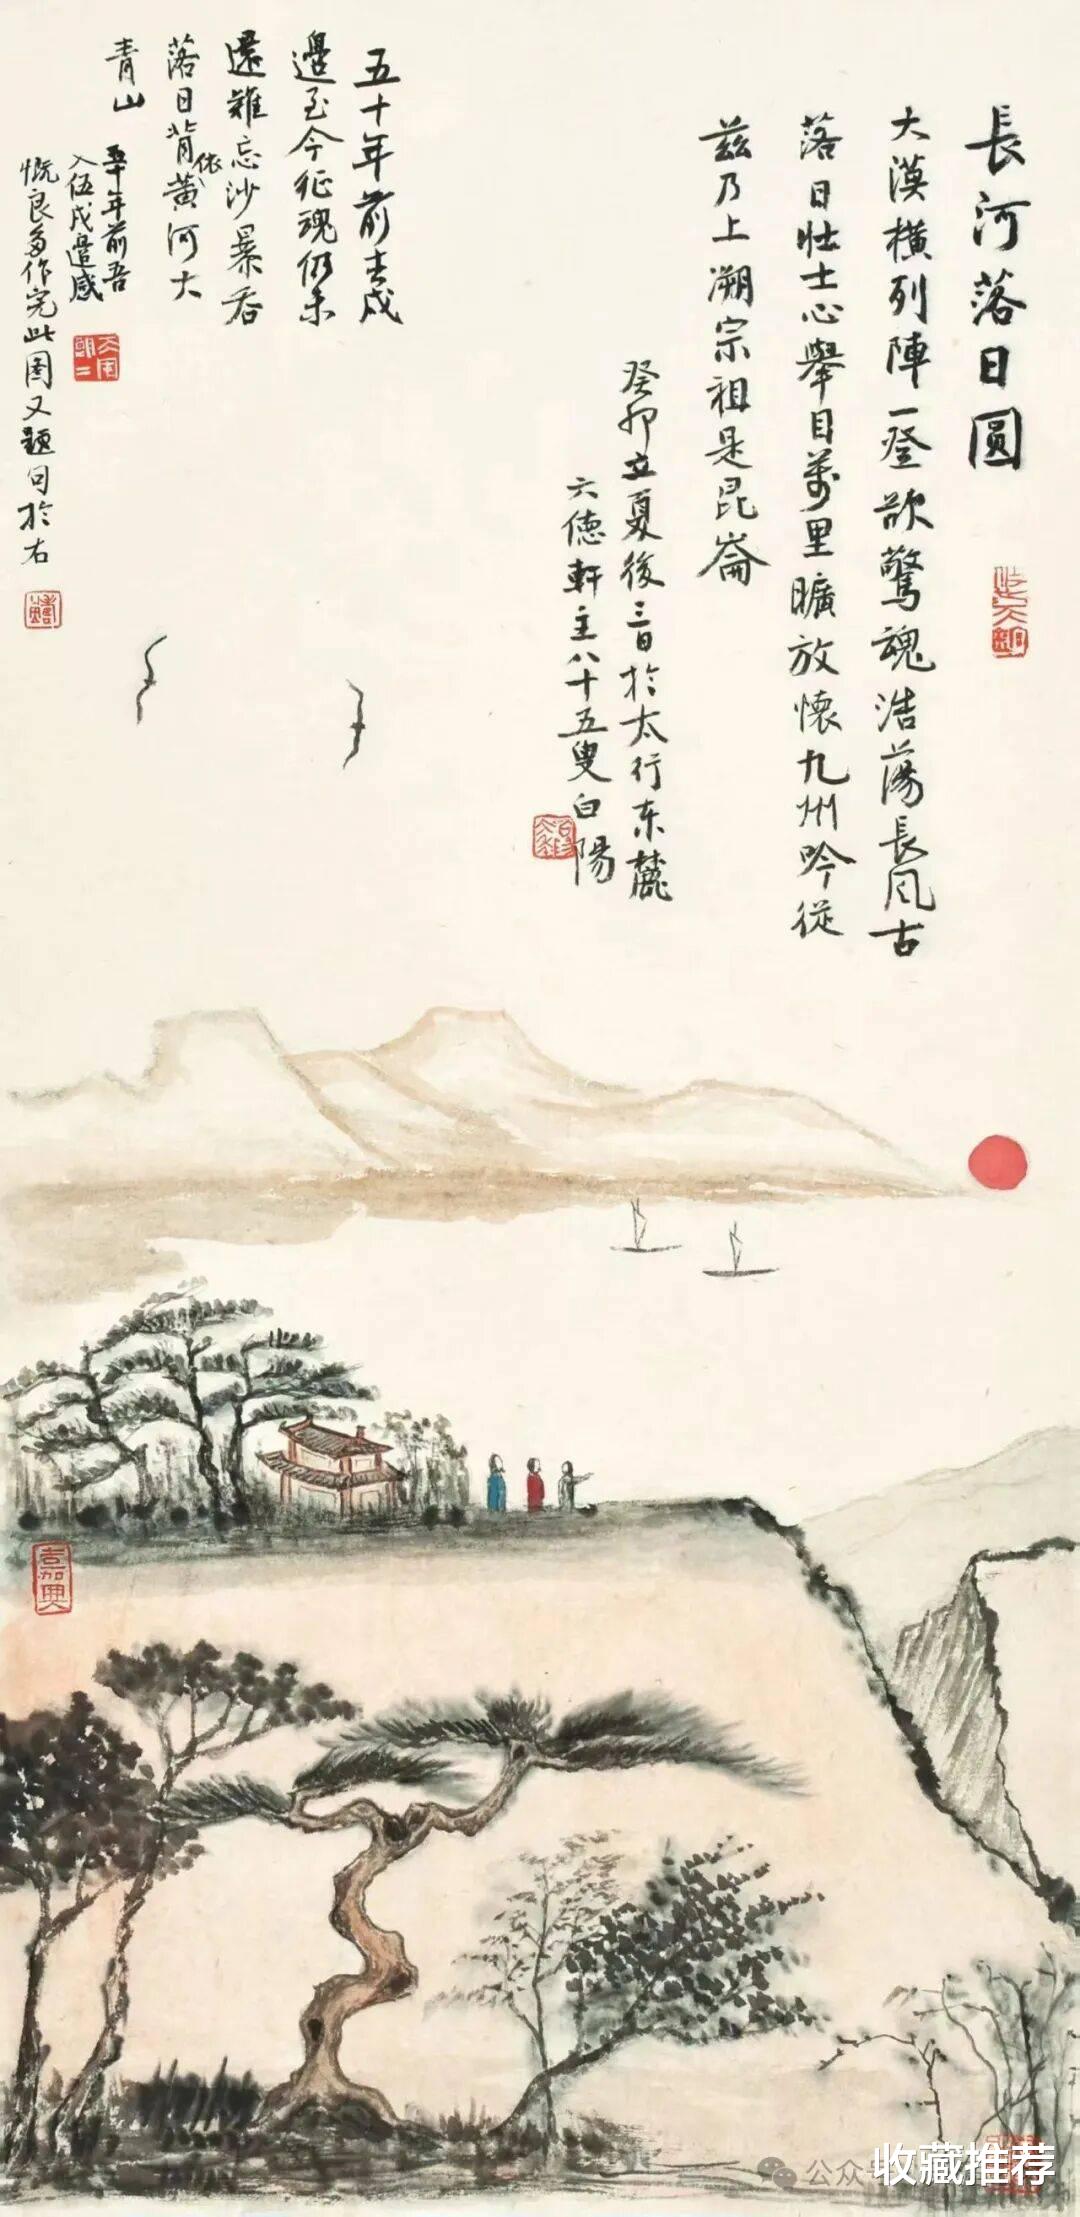 長河落日圓
大漠橫列陣一登欲驚魂浩蕩長風古
落日壯士心舉目萬里曠放懷九州吟從
茲乃上溯宗祖是昆崙
癸卯立夏後三日於太行东麓
六德軒主八十五叟白陽
五十年前去戍
邊至今征魂仍未
還難忘沙暴吞
落日背依黃河大
青山
五十年前吾
入伍戍邊感
慨良多作完此图又题句於右
袁加興
公众号
收藏推荐